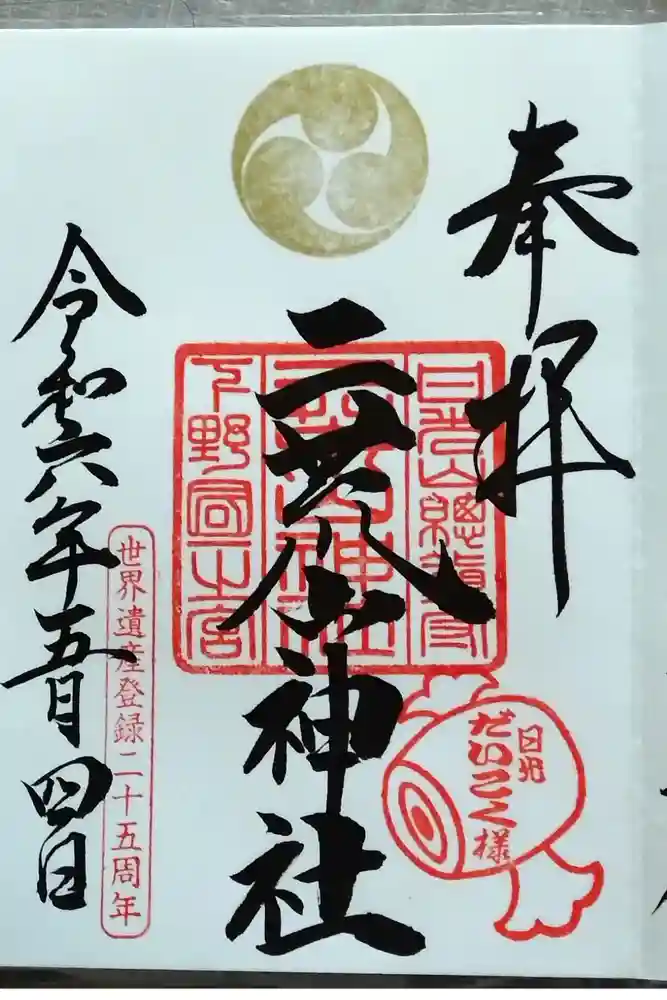 奉拝
日光山總鎮守
二荒山神社
下野國一之宮
二荒山神社
日光
だいこく様
世界遺産登録二十五周年
令和六年五月四日